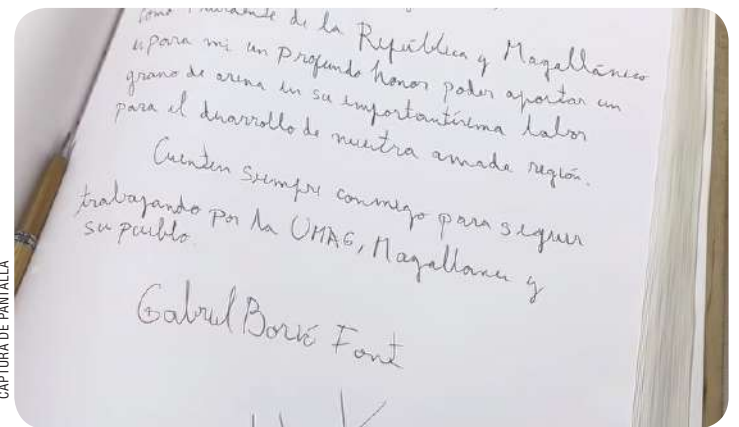 como Presidente de la República y Magallánico
es para mi un profundo honor poder aportar un
grano de arena en su importantísima labor
para el desarrollo de nuestra amada región.
Cuenten siempre conmigo para seguir
trabajando por la UMAG, Magallanes y
su pueblo
Gabriel Boric Font
CAPTURA DE PANTALLA